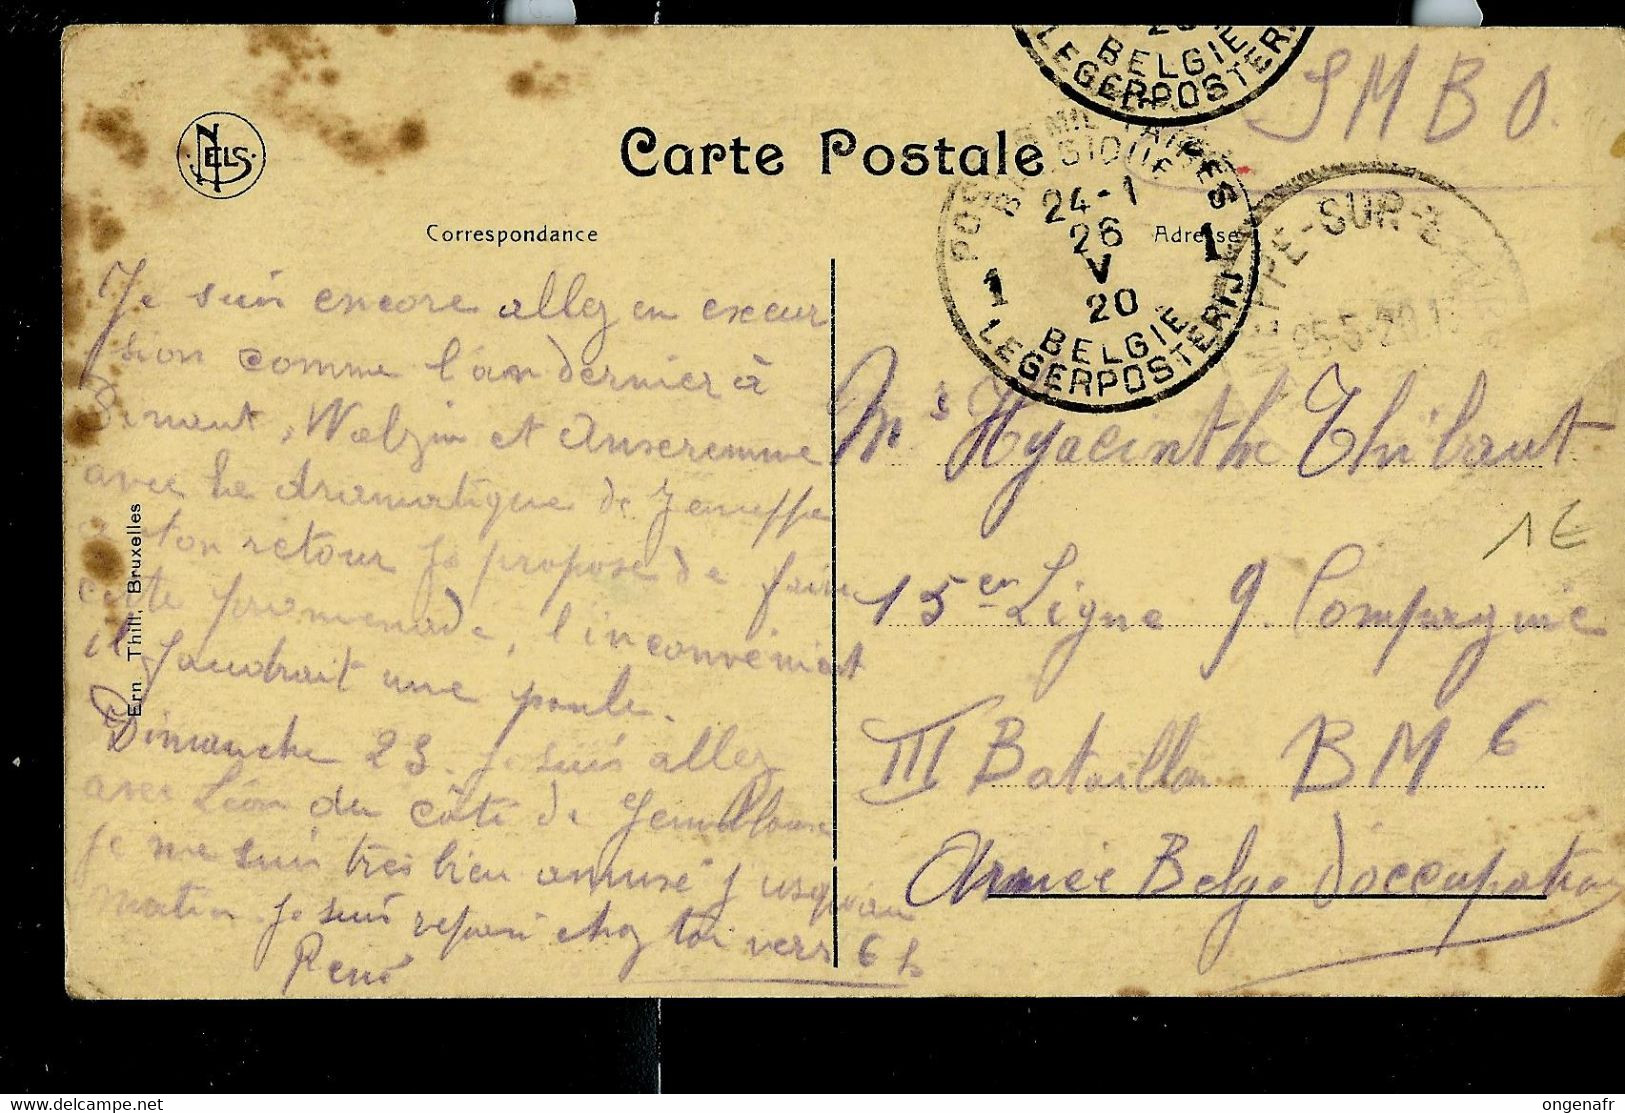 S M B O.
NELS
Carte Postale
Correspondance
Adresse
BELGIE
LEGERPOSTERIJ
POSTES MILITAIRES
BELGIQUE
24-1
26
V
20
1 1
BELGIE
LEGERPOSTERIJ
25-5-20
Je suis encore allez en excur
sion comme l'an dernier à
Dinant, Walzin et Anseremme
avec La dramatique de Jemeppe
à ton retour je propose de faire
cette promenade, l'inconvenient
il faudrait une poule.
Dimanche 23. je suis allez
avec Léon du côté de
je me suis très bien amusé jusqu'au
matin je suis chez toi vers 6 h
René
Mr Hyacinthe Thibaut
15er Ligne 9. Compagnie
III Bataillon B M 6
Armée Belge d'occupation
1 €
Ern. Thill, Bruxelles
ongenafr